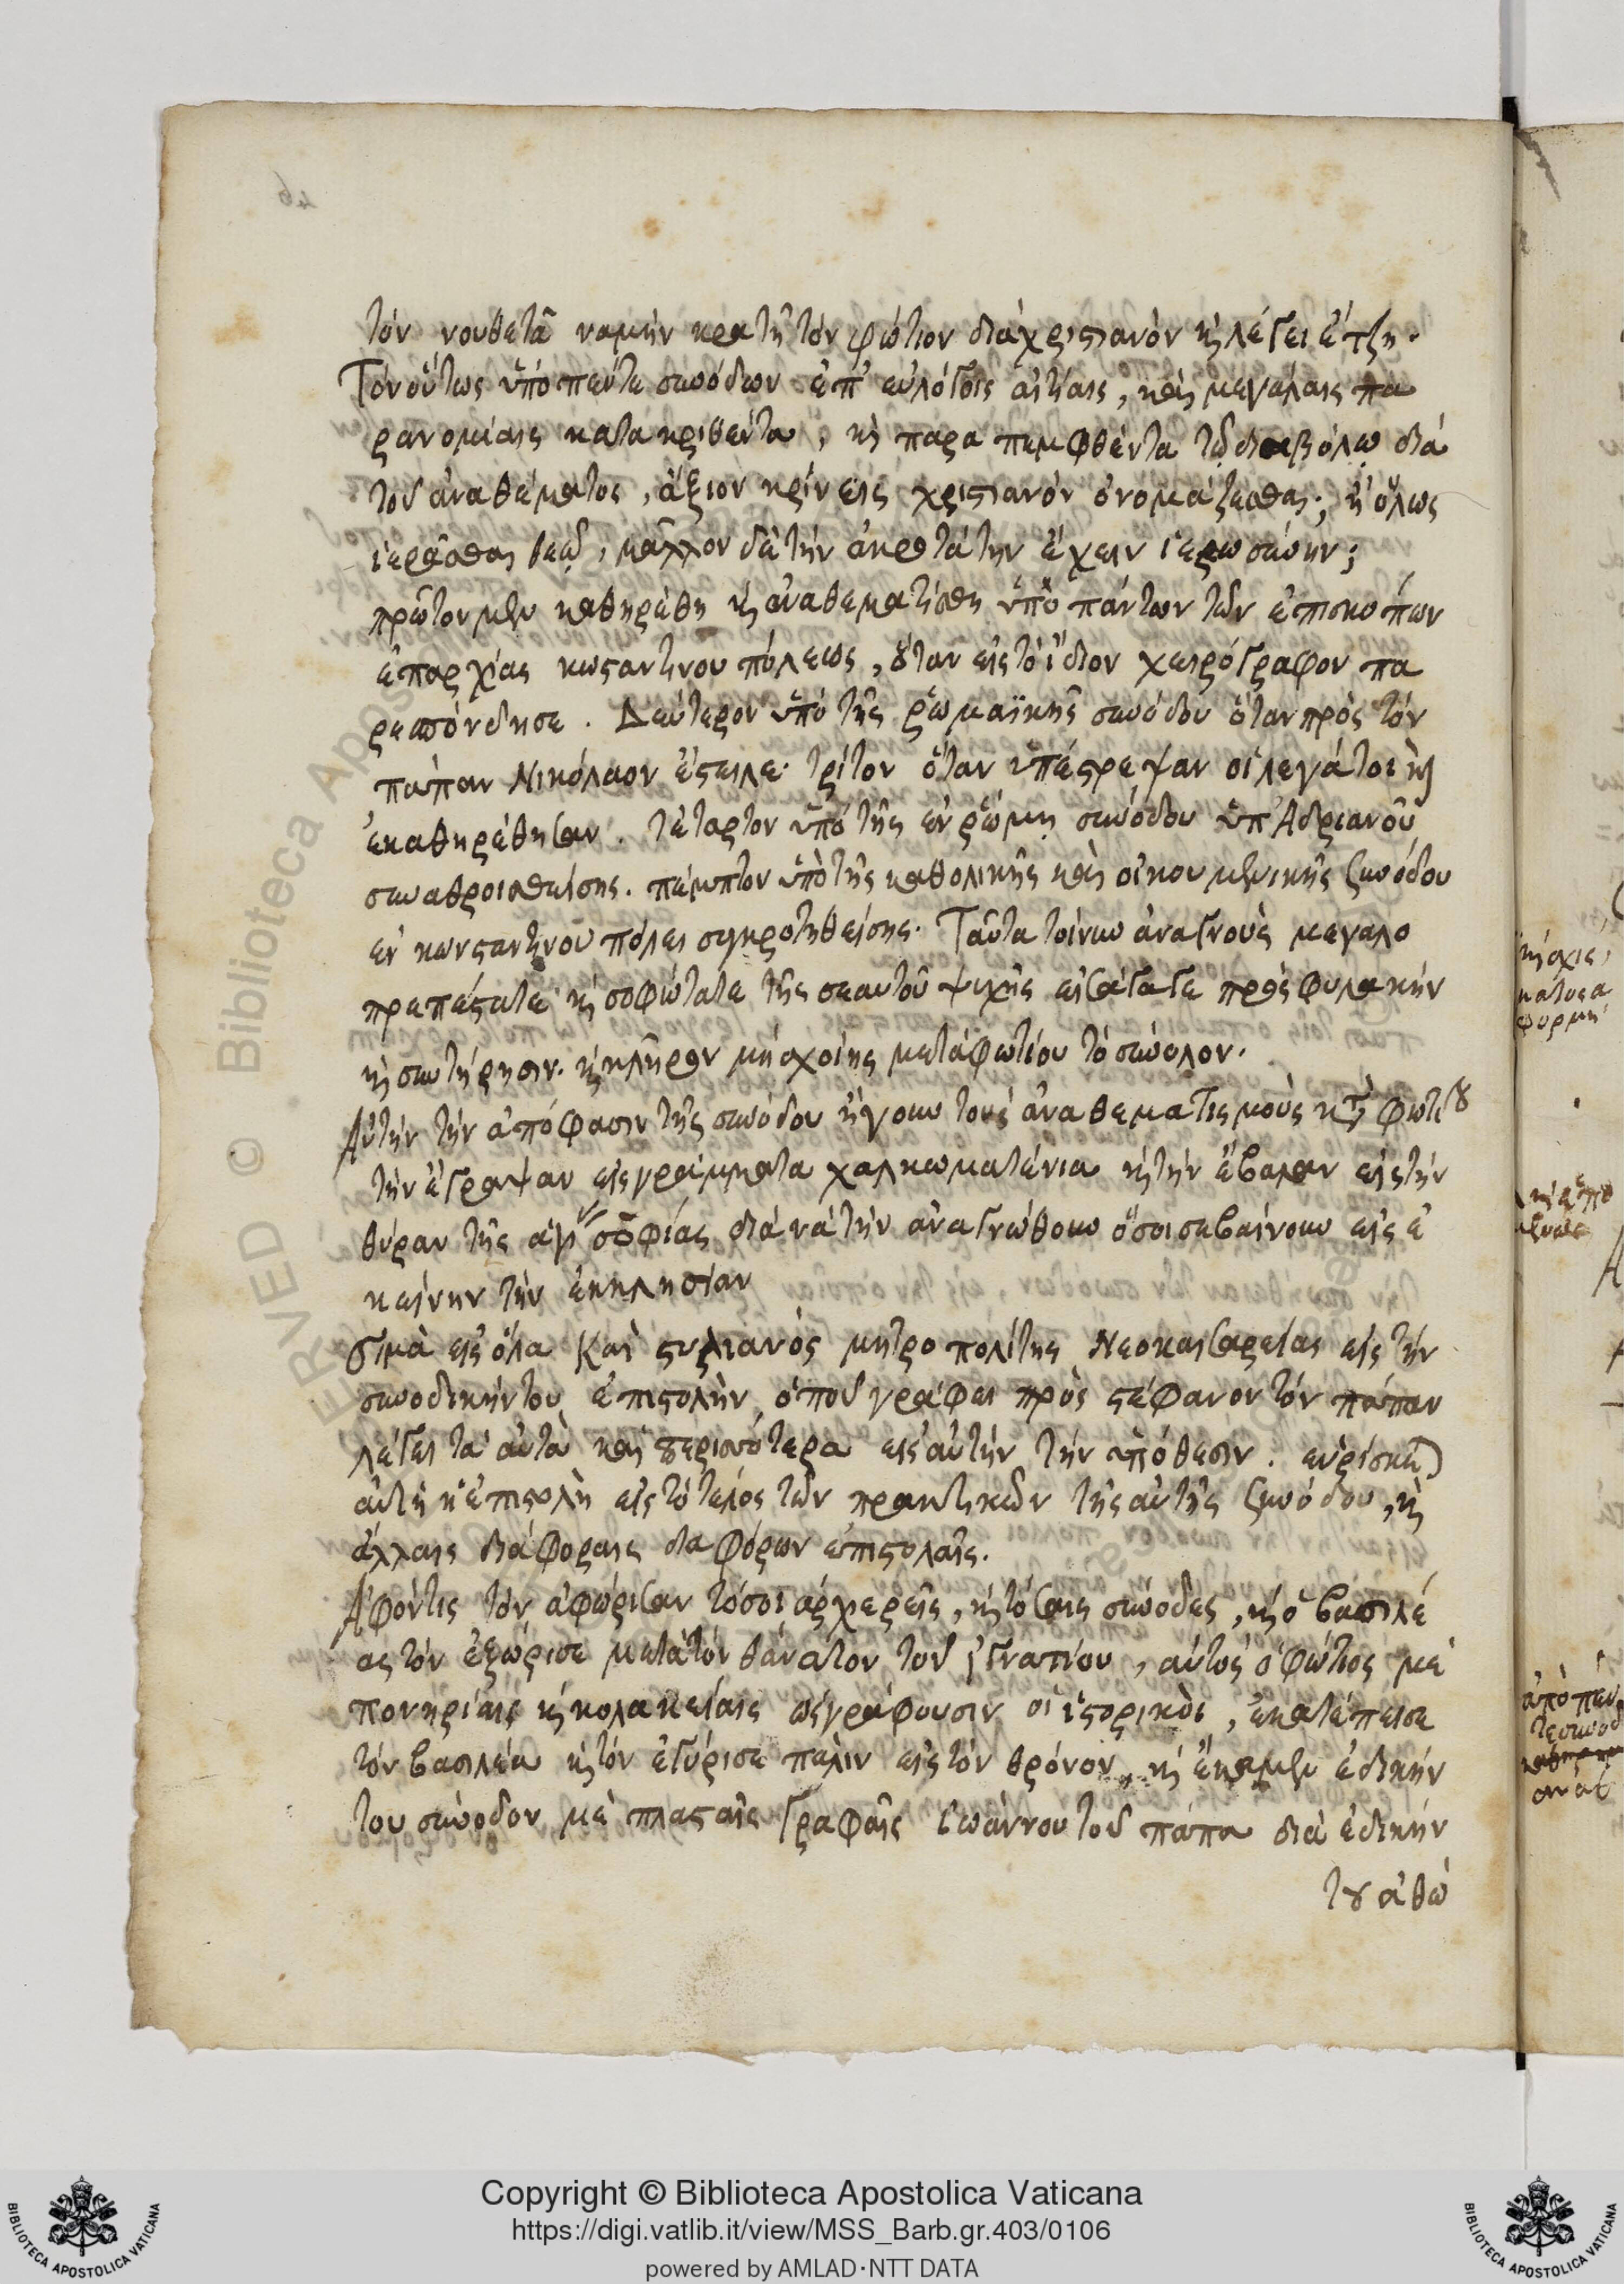 τόν νουθετᾶ ναμήν κρατῆ τόν φώτιον διά χριστιανόν κὶ λέγει ἔτζη.
Τόν οὕτως ὑπό πέντε συνόδων ἐπ' εὐλόγοις αἰτίαις, καὶ μεγάλαις πα
ρανομίαις κατακριθέντα, κὶ παραπεμφθέντα τῷ διαβόλῳ διά
τοῦ ἀναθέματος, ἄξιον κρίνεις χριστιανόν ὀνομάζεσθαι; ἢ ὅλως
ἱερᾶσθαι θεῷ, μᾶλλον δὲ τήν ἀκροτάτην ἔχειν ἱερωσύνην;
πρῶτον μὲν καθηρέθη κὶ ἀναθεματίσθη ὑπό πάντων τῶν ἐπισκόπων
ἐπαρχίας κωσταντινουπόλεως, ὅταν εἰς τό ἴδιον χειρόγραφον πα
ρεσπόνδησε. Δεύτερον ὑπό τῆς ῥωμαϊκῆς συνόδου ὅταν πρός τόν
πάπαν Νικόλαον ἔστειλε. τρίτον ὅταν ὑπέστρεψαν οἱ λεγάτοι κὶ
ἐκαθηρέθησαν. τέταρτον ὑπό τῆς ἐν ῥώμη συνόδου ὑπ' Ἀδριανοῦ
συναθροισθείσης. πέμπτον ὑπό τῆς καθολικῆς καὶ οἰκουμενικῆς συνόδου
ἐν κωνσταντινουπόλει συγκροτηθείσης. Ταῦτα τοίνυν ἀναγνούς μεγαλο
πρεπέστατε κὶ σοφώτατε τῆς σεαυτοῦ ψυχῆς πρός φυλακήν
κὶ συντήρησιν. κὶ κλῆρον μή σχοίης μετά φωτίου τό σύνολον.
Αὐτήν τήν ἀπόφασιν τῆς συνόδου ἤγουν τούς ἀναθεματισμούς κτ φωτίου
τήν ἔγραψαν εἰς γράμματα χαλκωματένια κὶ τήν ἔβαλαν εἰς τήν
θύραν τῆς ἁγι σοφίας διά νά τήν ἀναγνώθουν ὅσοι σεβαίνουν εἰς ἐ
κείνην τήν ἐκκλησίαν
σιμά εἰς ὅλα Καί στυλιανός μητροπολίτης Νεοκαισαρείας εἰς τήν
συνοδικήν του ἐπιστολήν, ὁποῦ γράφει πρός στέφανον τόν πάπαν
λέγει τά αὐτά καὶ περισσότερα εἰς αὐτήν τήν ὑπόθεσιν. εὑρίσκεται
αὐτή ἡ ἐπιστολή εἰς τό τέλος τῶν πρακτικῶν τῆς αὐτῆς συνόδου, κὶ
ἄλλαις διάφοραις διαφόρων ἐπιστολαῖς.
Ἀφόντις τόν ἀφώρισαν τόσοι ἀρχερεῖς, κὶ τόσαις σύνοδες, κὶ ὁ βασιλέ
ας τόν ἐξώρισε μετά τόν θάνατον τοῦ ἰγνατίου, αὐτός ὁ φώτιος μέ
πονηρίαις κὶ κολακείαις ὡς γράφουσιν οἱ ἱστορικοί, ἐκατέπεισε
τόν βασιλέα κὶ τόν ἐγύρισε πάλιν εἰς τόν θρόνον, κὶ ἔκαμεν ἐδικήν
του σύνοδον μέ πλασταῖς γραφαῖς ἰωάννου τοῦ πάπα διά ἐδικήν
του ἀθώ
Copyright © Biblioteca Apostolica Vaticana
https://digi.vatlib.it/view/MSS_Barb.gr.403/0106
powered by AMLAD·NTT DATA